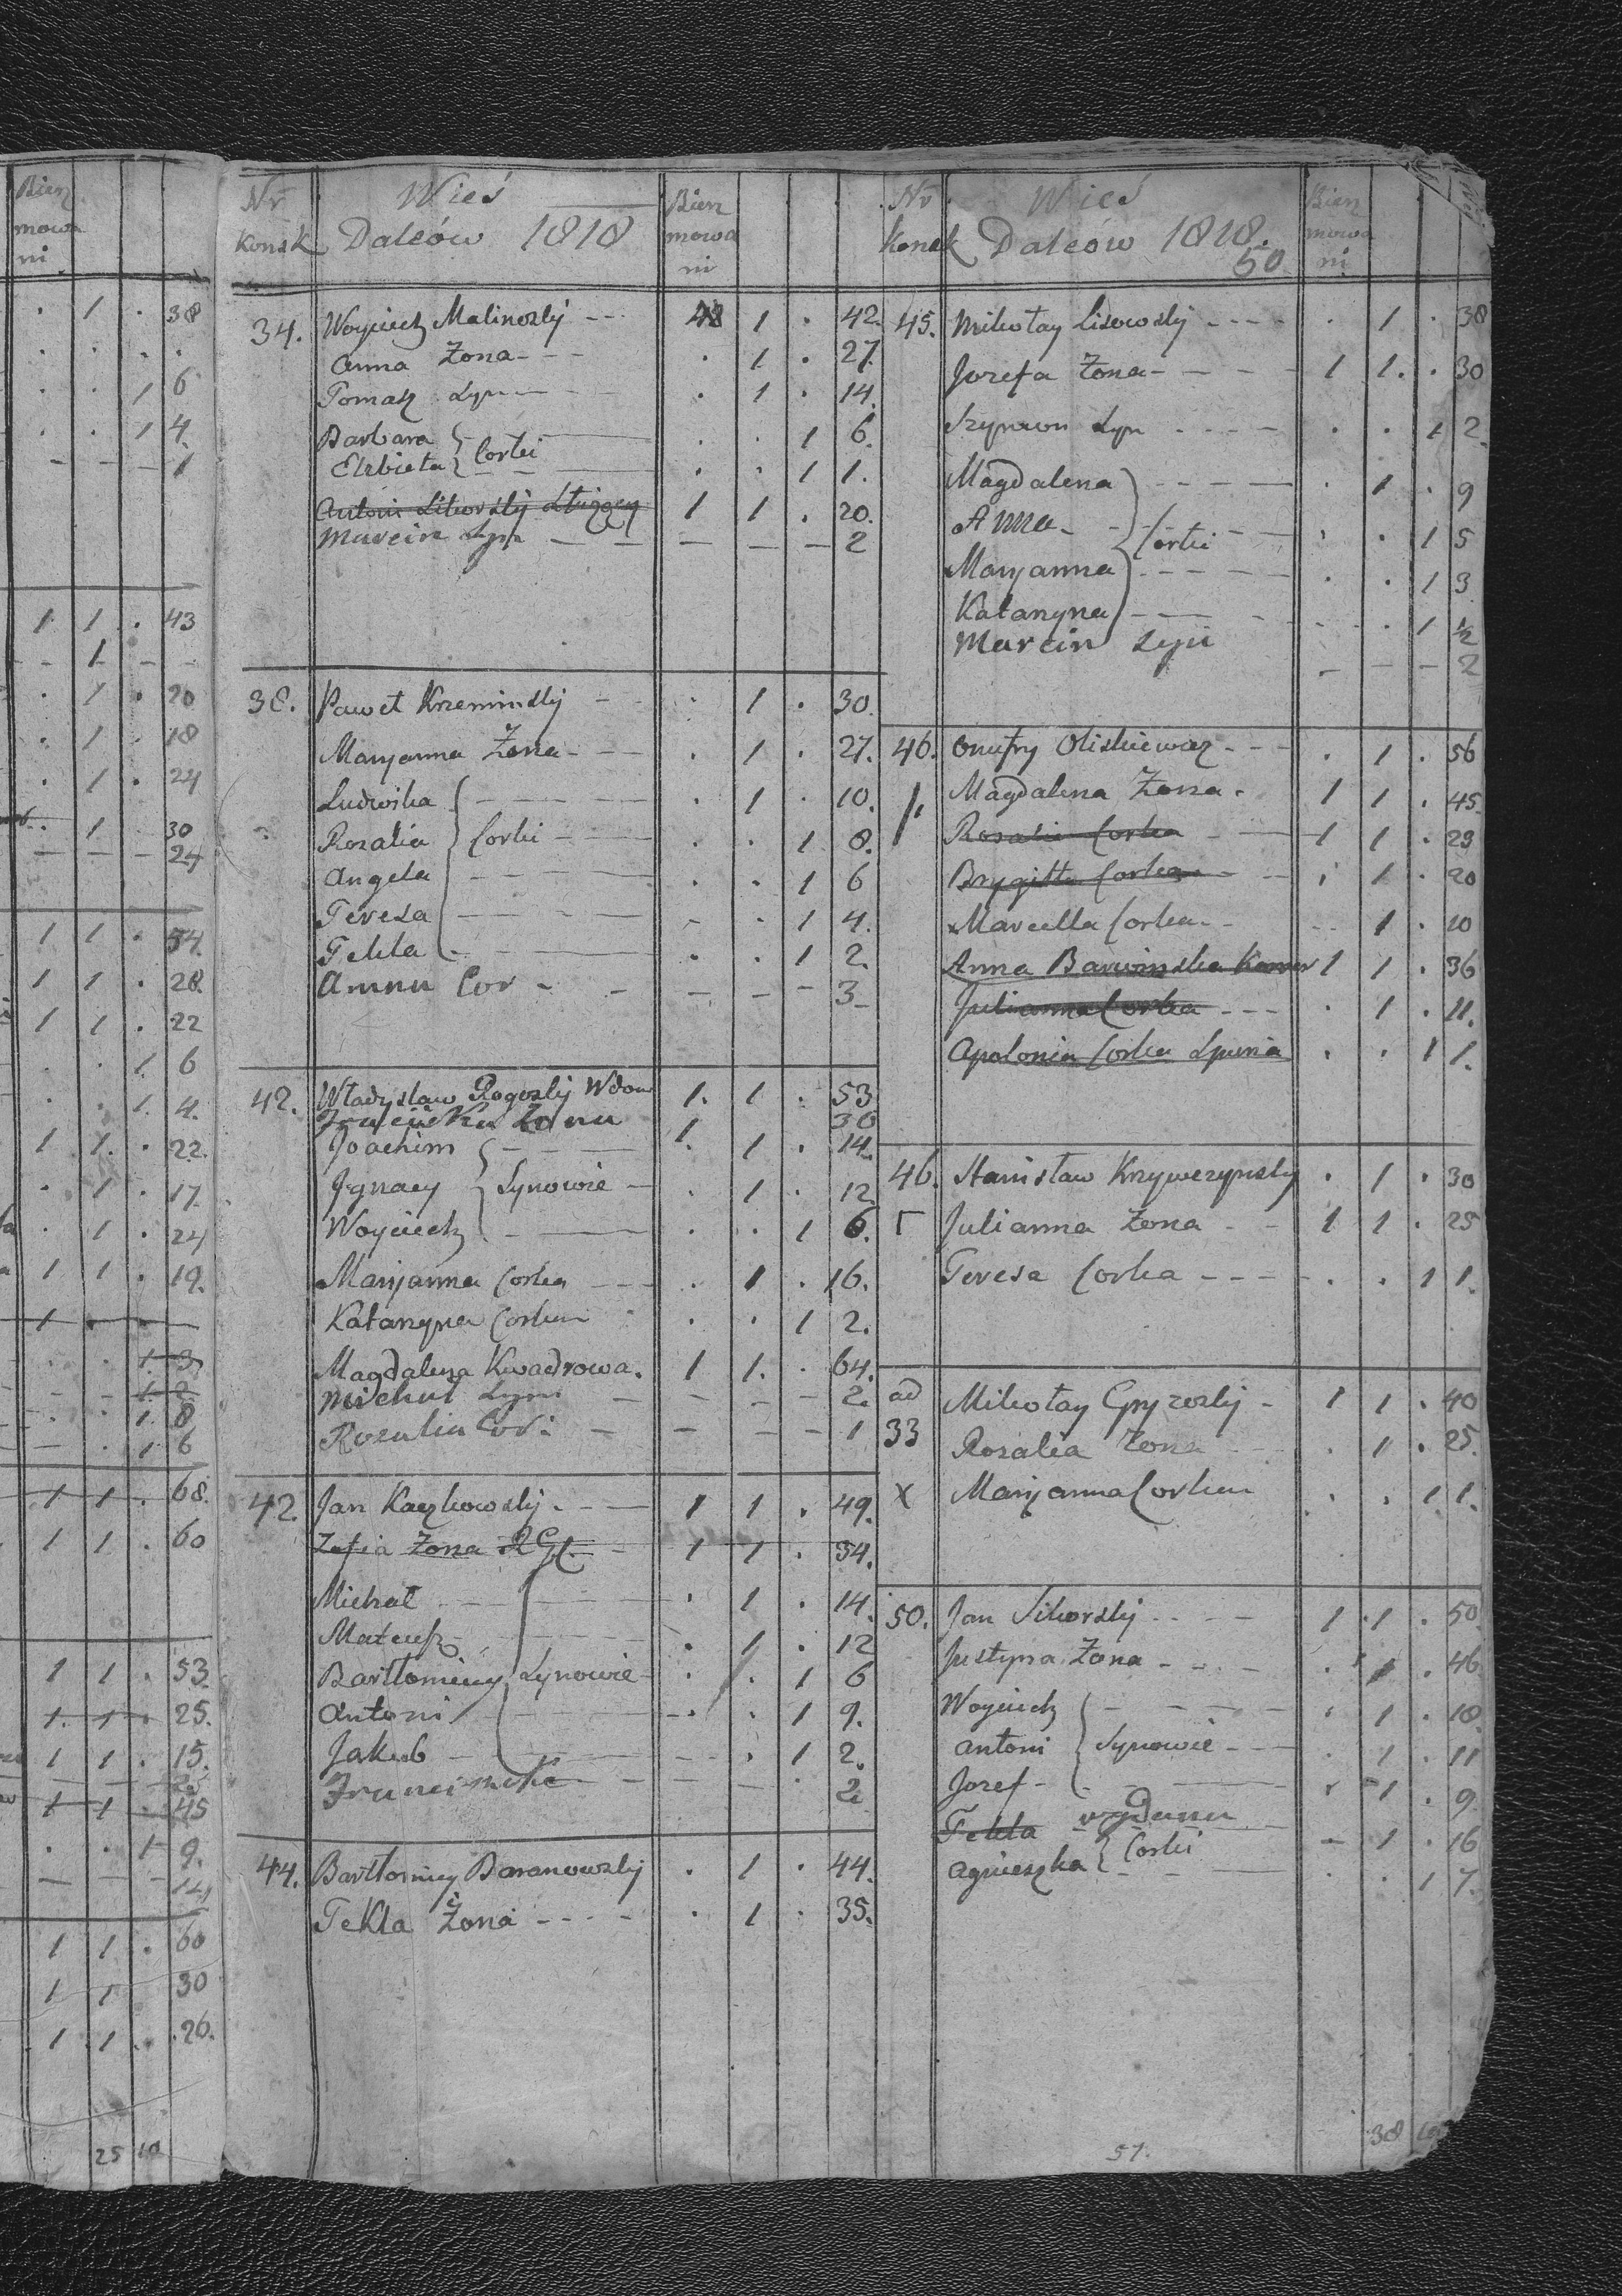 Bierz
mowa
ni
. 1 . 38
. . . .
. . 1 6
. . 1 4.
— — — 1
1 1 . 43
- - 1 - -
. 1 . 20
. 1 . 18
. 1 . 24
1 30
— — — 24
1 1 . 54.
1 1 . 28.
1 1 . 22
. . 1 6
. . 1. 4.
1 1. . 22.
. 1 . 17.
. 1 . 24
1 1 . 19.
1 . —
. . 1. 3
- - 1. 2
. . 1. 8
— . 1 6
1 1 . 68.
1 1 . 60
1 1 . 53.
1. 1 . 25.
1 1 . 15.
1 1 . 45
. . 1 9.
1 1 . 60
1 1 30
1 1 . 26.
25 10
Nr Wieś Bierz
Konsk Dalców 1818 mowa
ni
34. Woyciech Malinosky --- 48 1 . 42.
Anna Żona --- . 1 . 27.
Tomasz Syn --- . 1 . 14.
Barbara . . 1 6.
Elzbieta } Corki . . 1 1.
Antoni Sikorsky Służący 1 1 . 20.
Marcin Syn — — — — — 2
38. Paweł Krzeminsky -- . 1 . 30.
Maryanna Żona --- . 1 . 27.
Ludwika . 1 . 10.
Rozalia { Corki . . 1 8.
Angela . . 1 6
Teresa - . 1 4.
Tekla . . 1 2.
Annu Cor - - — - - 3
42. Władysław Rogosky Wdow 1. 1 . 53
Franciszka Żona 30
Joachim 1. 1 . 14.
Jgnacy } Synowie - . 1 . 12
Woyciech . . 1 6.
Maryanna Corka --- . 1 . 16.
Katarzyna Corka . . 1 2.
Magdalena Kwadrowa. 1 1. . 64.
Michał Syn — - — — 2.
Rozalia Cor: — — — — 1
42. Jan Kaczkowsky. -- 1 1 . 49.
Zofia Żona 1 1 . 54.
Michał . 1 . 14.
Mateusz . 1 . 12
Bartłomiey Synowie . . 1 6
Antoni -. . 1 9.
Jakub - . 1 2.
Franciszka — — - 2
44. Bartłomiey Baranowsky . 1 . 44.
Tekla Żona ---- . 1 . 35.
Nr Wieś Bierz
Konsk Dalców 1818. mowa
50 ni
45. Mikołay Lisowsky ---- . 1 . 38
Jozefa Żona ---- 1 1. . 30
Szymon Syn ---- . . 1 2.
Magdalena . 1 . 9
Anna - } Corki . . 1 5
Maryanna . . 1 3
Katarzyna . . 1 ½
Marcin Syn - — — 2
46. Onufry Oliskiewicz --- . 1 . 56
Magdalena Żona. 1 1 . 45.
Rozalia Corka 1 1 . 23
Brygitta Corka . 1 . 20
Marcella Corka - - 1 . 10
Anna Barwinska Komor 1 1 . 36
Julianna Corka --- . 1 . 11.
Apolonia Corka Spuria . . 1 1.
46. Stanisław Krzywczynsky . 1 . 30
Julianna Żona - - 1 1 . 25
Teresa Corka ---- . . 1 1.
ad Mikołay Gryzosky - 1 1 . 40
33 Rozalia Żona . 1 . 25.
X Maryanna Corka . . 1 1.
50. Jan Sikorsky ---- 1 1 . 50
Justyna Żona ---- . 1 . 46
Woyciech . 1 . 18.
Antoni } Synowie --- . 1 . 11
Jozef . 1 . 9.
Tekla wydana - 1 . 16
Agnieszka } Corki . . 1 7.
57. 38